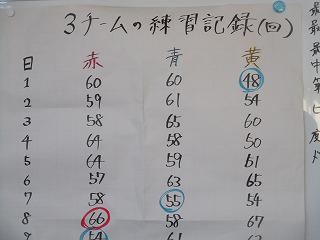 3チームの練習記録(回)
日 赤 青 黄
1 60 60 48
2 59 61 54
3 58 65 60
4 64 58 50
5 64 59 61
6 57 63 65
7 58 55 54
8 66 58 67
9 54 61 63